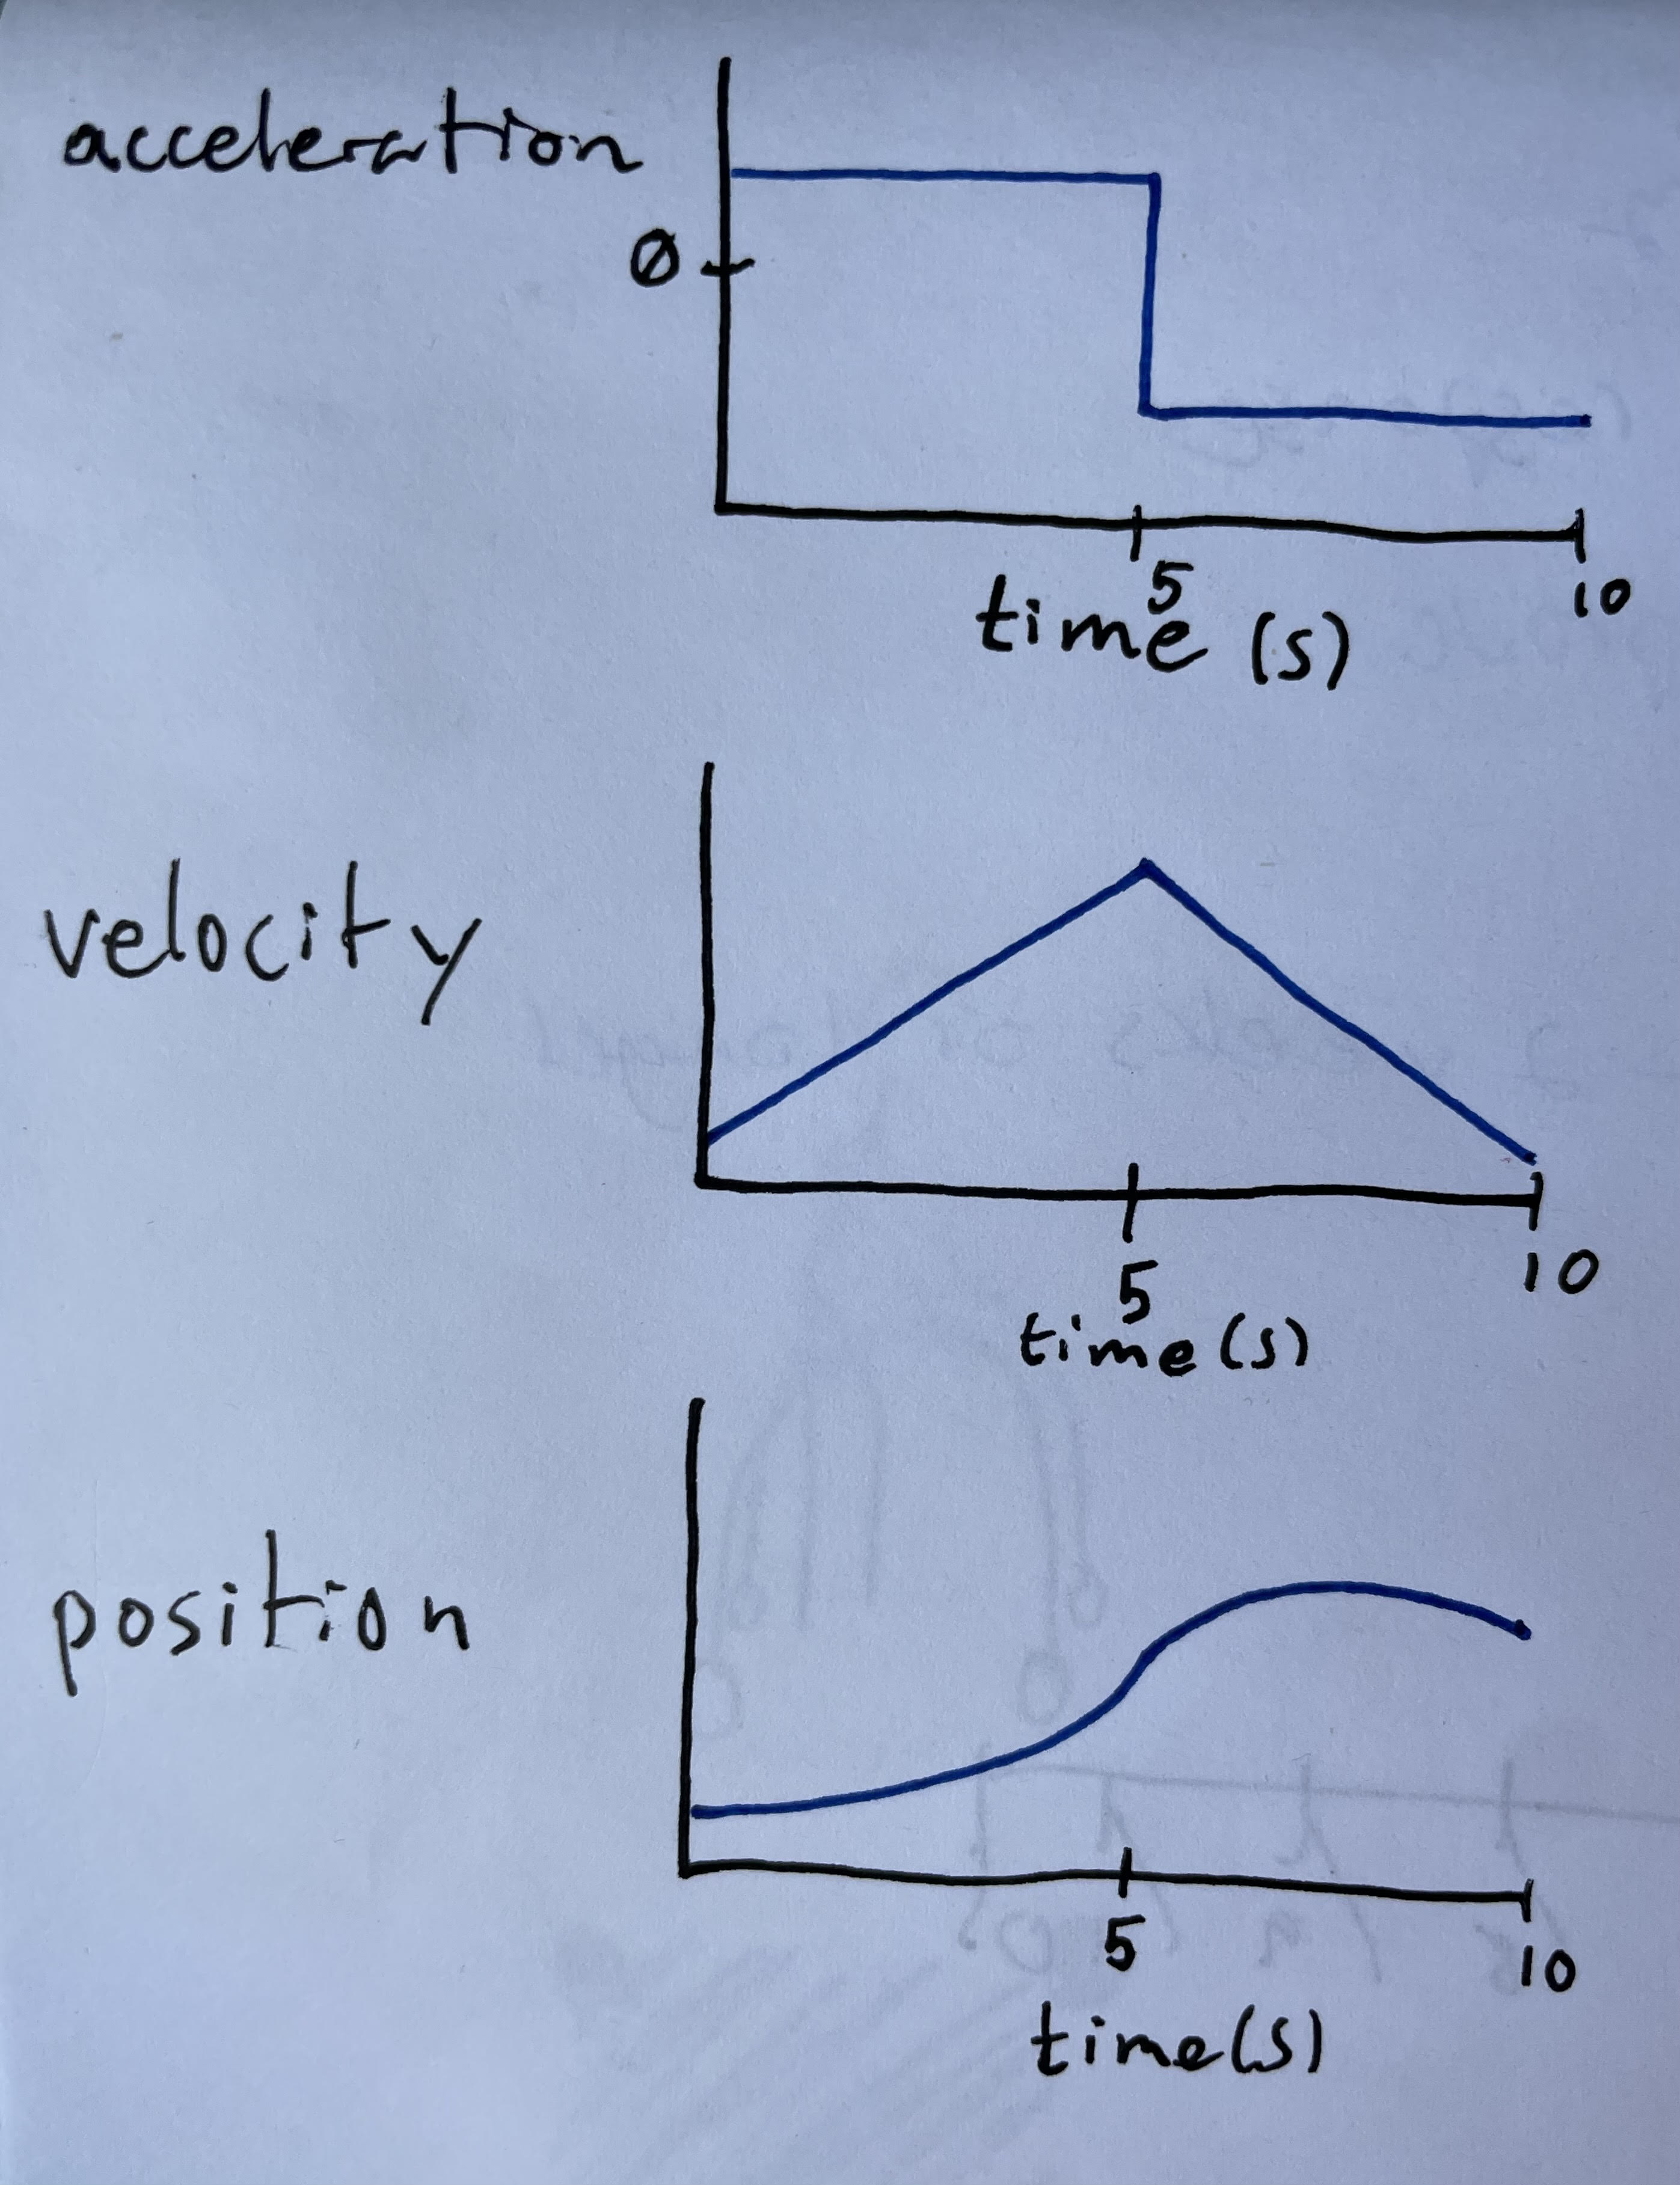 acceleration
0
5
10
time (s)
velocity
5
10
time (s)
position
5
10
time (s)